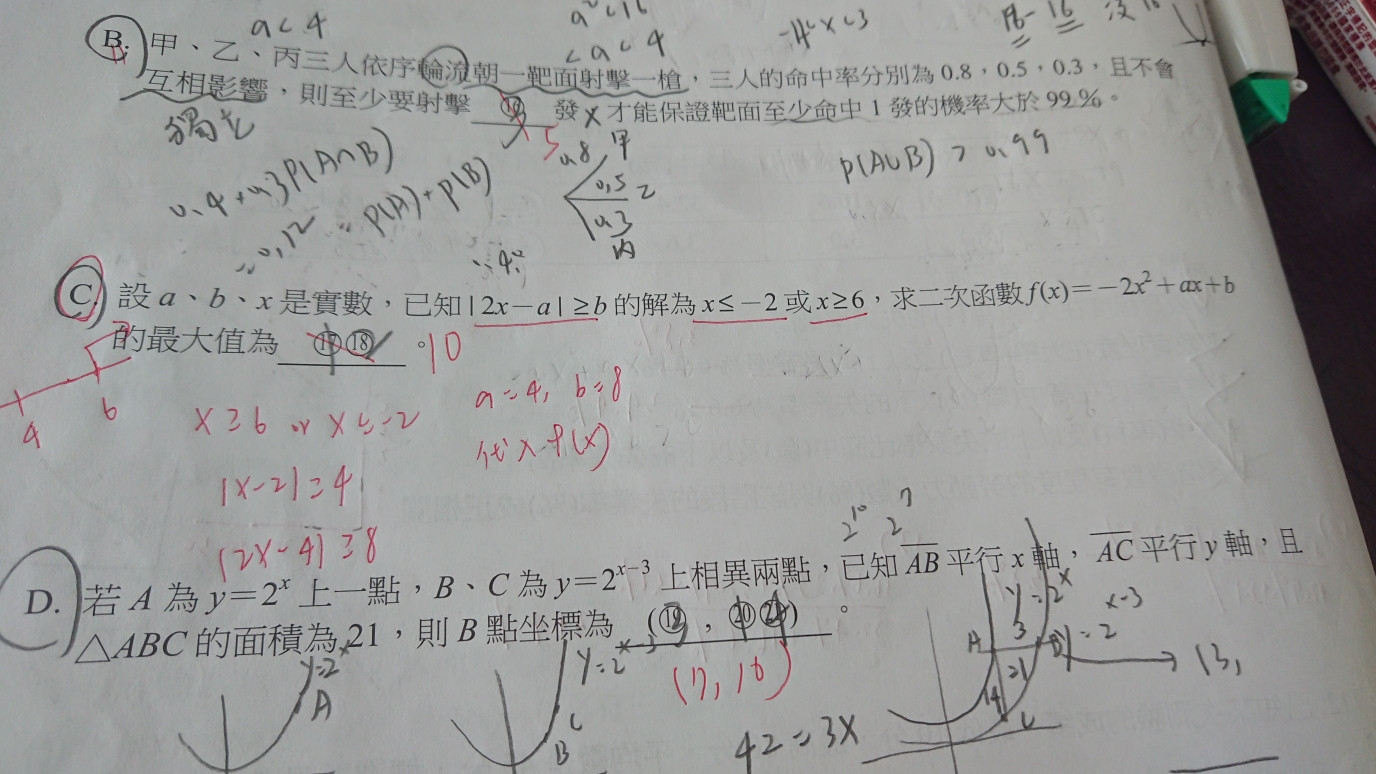 a<4
<a<4
-4<x<3
B. 甲、乙、丙三人依序輪流朝一靶面射擊一槍，三人的命中率分別為 0.8，0.5，0.3，且不會
互相影響，則至少要射擊 ⑯ 發 x 才能保證靶面至少命中 1 發的機率大於 99％。
獨立
5
0.8 甲
0.5 乙
0.3
丙
P(A∪B) > 0.99
P(A∩B)
P(A)+P(B)
C. 設 a、b、x 是實數，已知 | 2x－a | ≥b 的解為 x≤－2 或 x≥6，求二次函數 f(x)＝－2x²＋ax＋b
的最大值為 ⑰⑱ 。10
4 6
x≥6 or x≤-2
a=4, b=8
|x-2|≥4
代x f(x)
|2x-4|≥8
2¹⁰ 2⁷
D. 若 A 為 y＝2ˣ 上一點，B、C 為 y＝2ˣ⁻³ 上相異兩點，已知 AB 平行 x 軸，AC 平行 y 軸，且
△ABC 的面積為 21，則 B 點坐標為 (⑲，⑳㉑) 。
(7,16)
y=2ˣ
A
y=2ˣ⁻³
C
B
42=3x
y=2ˣ
A 3 B
y=2ˣ⁻³
14 21
(3,